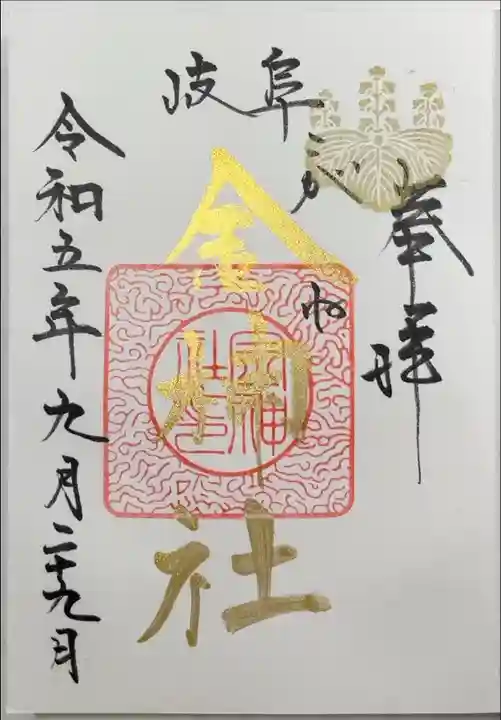 奉拝
岐阜
こがね
金神社
令和五年九月二十九日